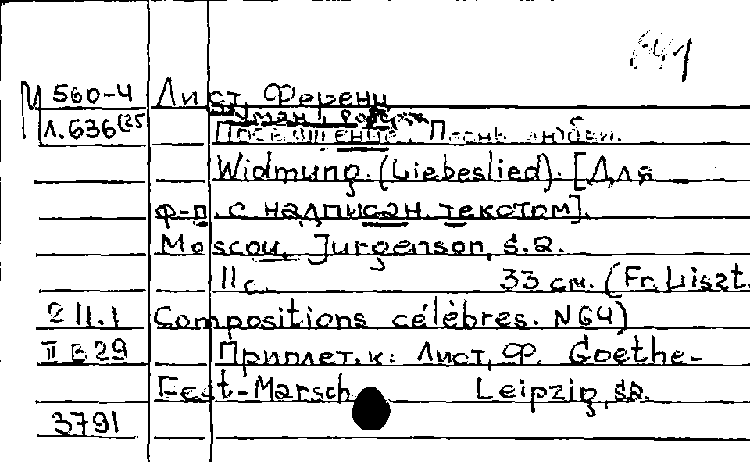 641
М 560-4 Лист, Ференц
Л.636(25 Шуман, Роберт
Посвящение. Песнь любви.
Widmung. (Liebeslied). [Для
ф-п. с надписан. текстом].
Moscou, Jurgenson, s.a.
11 с. 33 см. (Fr. Liszt.
2 11.1 Compositions célèbres. N64)
II в 29 Приплет. к: Лист, Ф. Goethe-
Fest-Marsch Leipzig, s.a.
3791